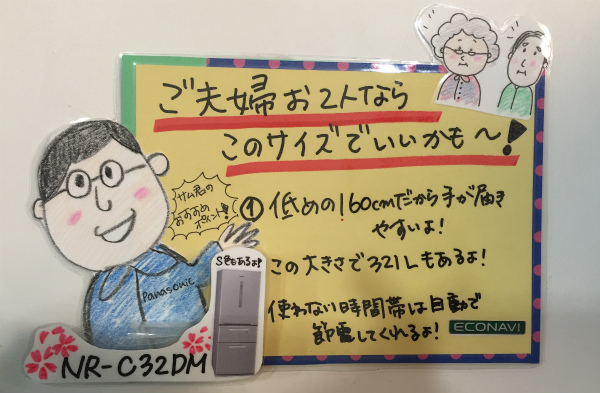 ご夫婦お2人なら
このサイズでいいかも〜!
サム君の
おすすめ
ポイント!!
① 低めの160cmだから手が届き
やすいよ!
この大きさで321Lもあるよ!
使わない時間帯は自動で
節電してくれるよ!
ECONAVI
Panasonic
S色もあるよ!
NR-C32DM